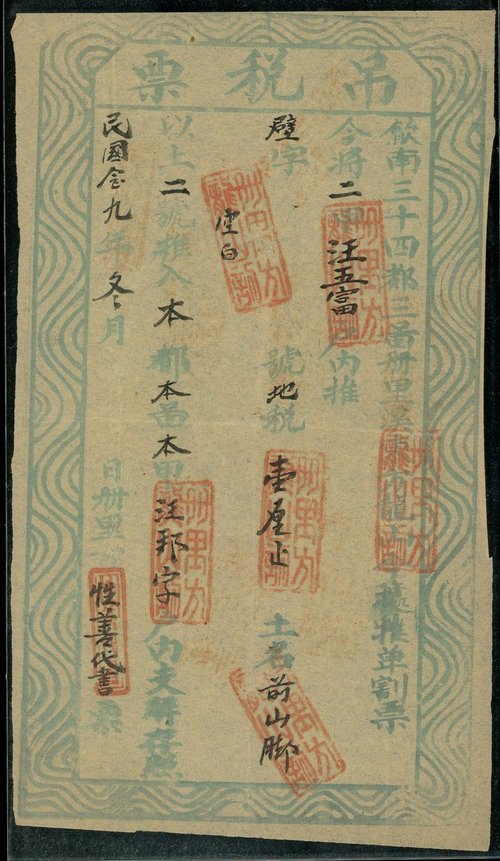 吊税票
歙南三十四都三啚册里溪東推單割票
今將二甲汪五富戶内推
壁字空白號地税壹厘正土名前山脚
以上二號推入本都本啚本里汪邦字戶内支解存照
民國念九年冬月日册里性善代書票